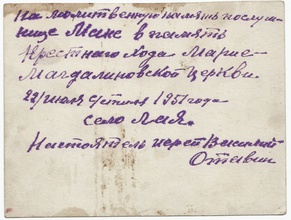 На молитвенную память послуш-
нице Мане в память
Крестнаго Хода Марие-
Магдалиновской Церкви
22/июля 1951 года
село Лая.
Настоятель иерей Василий